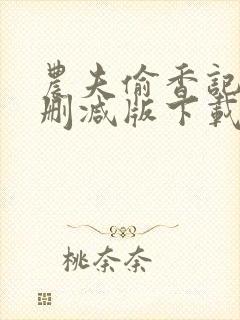 農夫偷香記
刪減版下載
桃奈奈